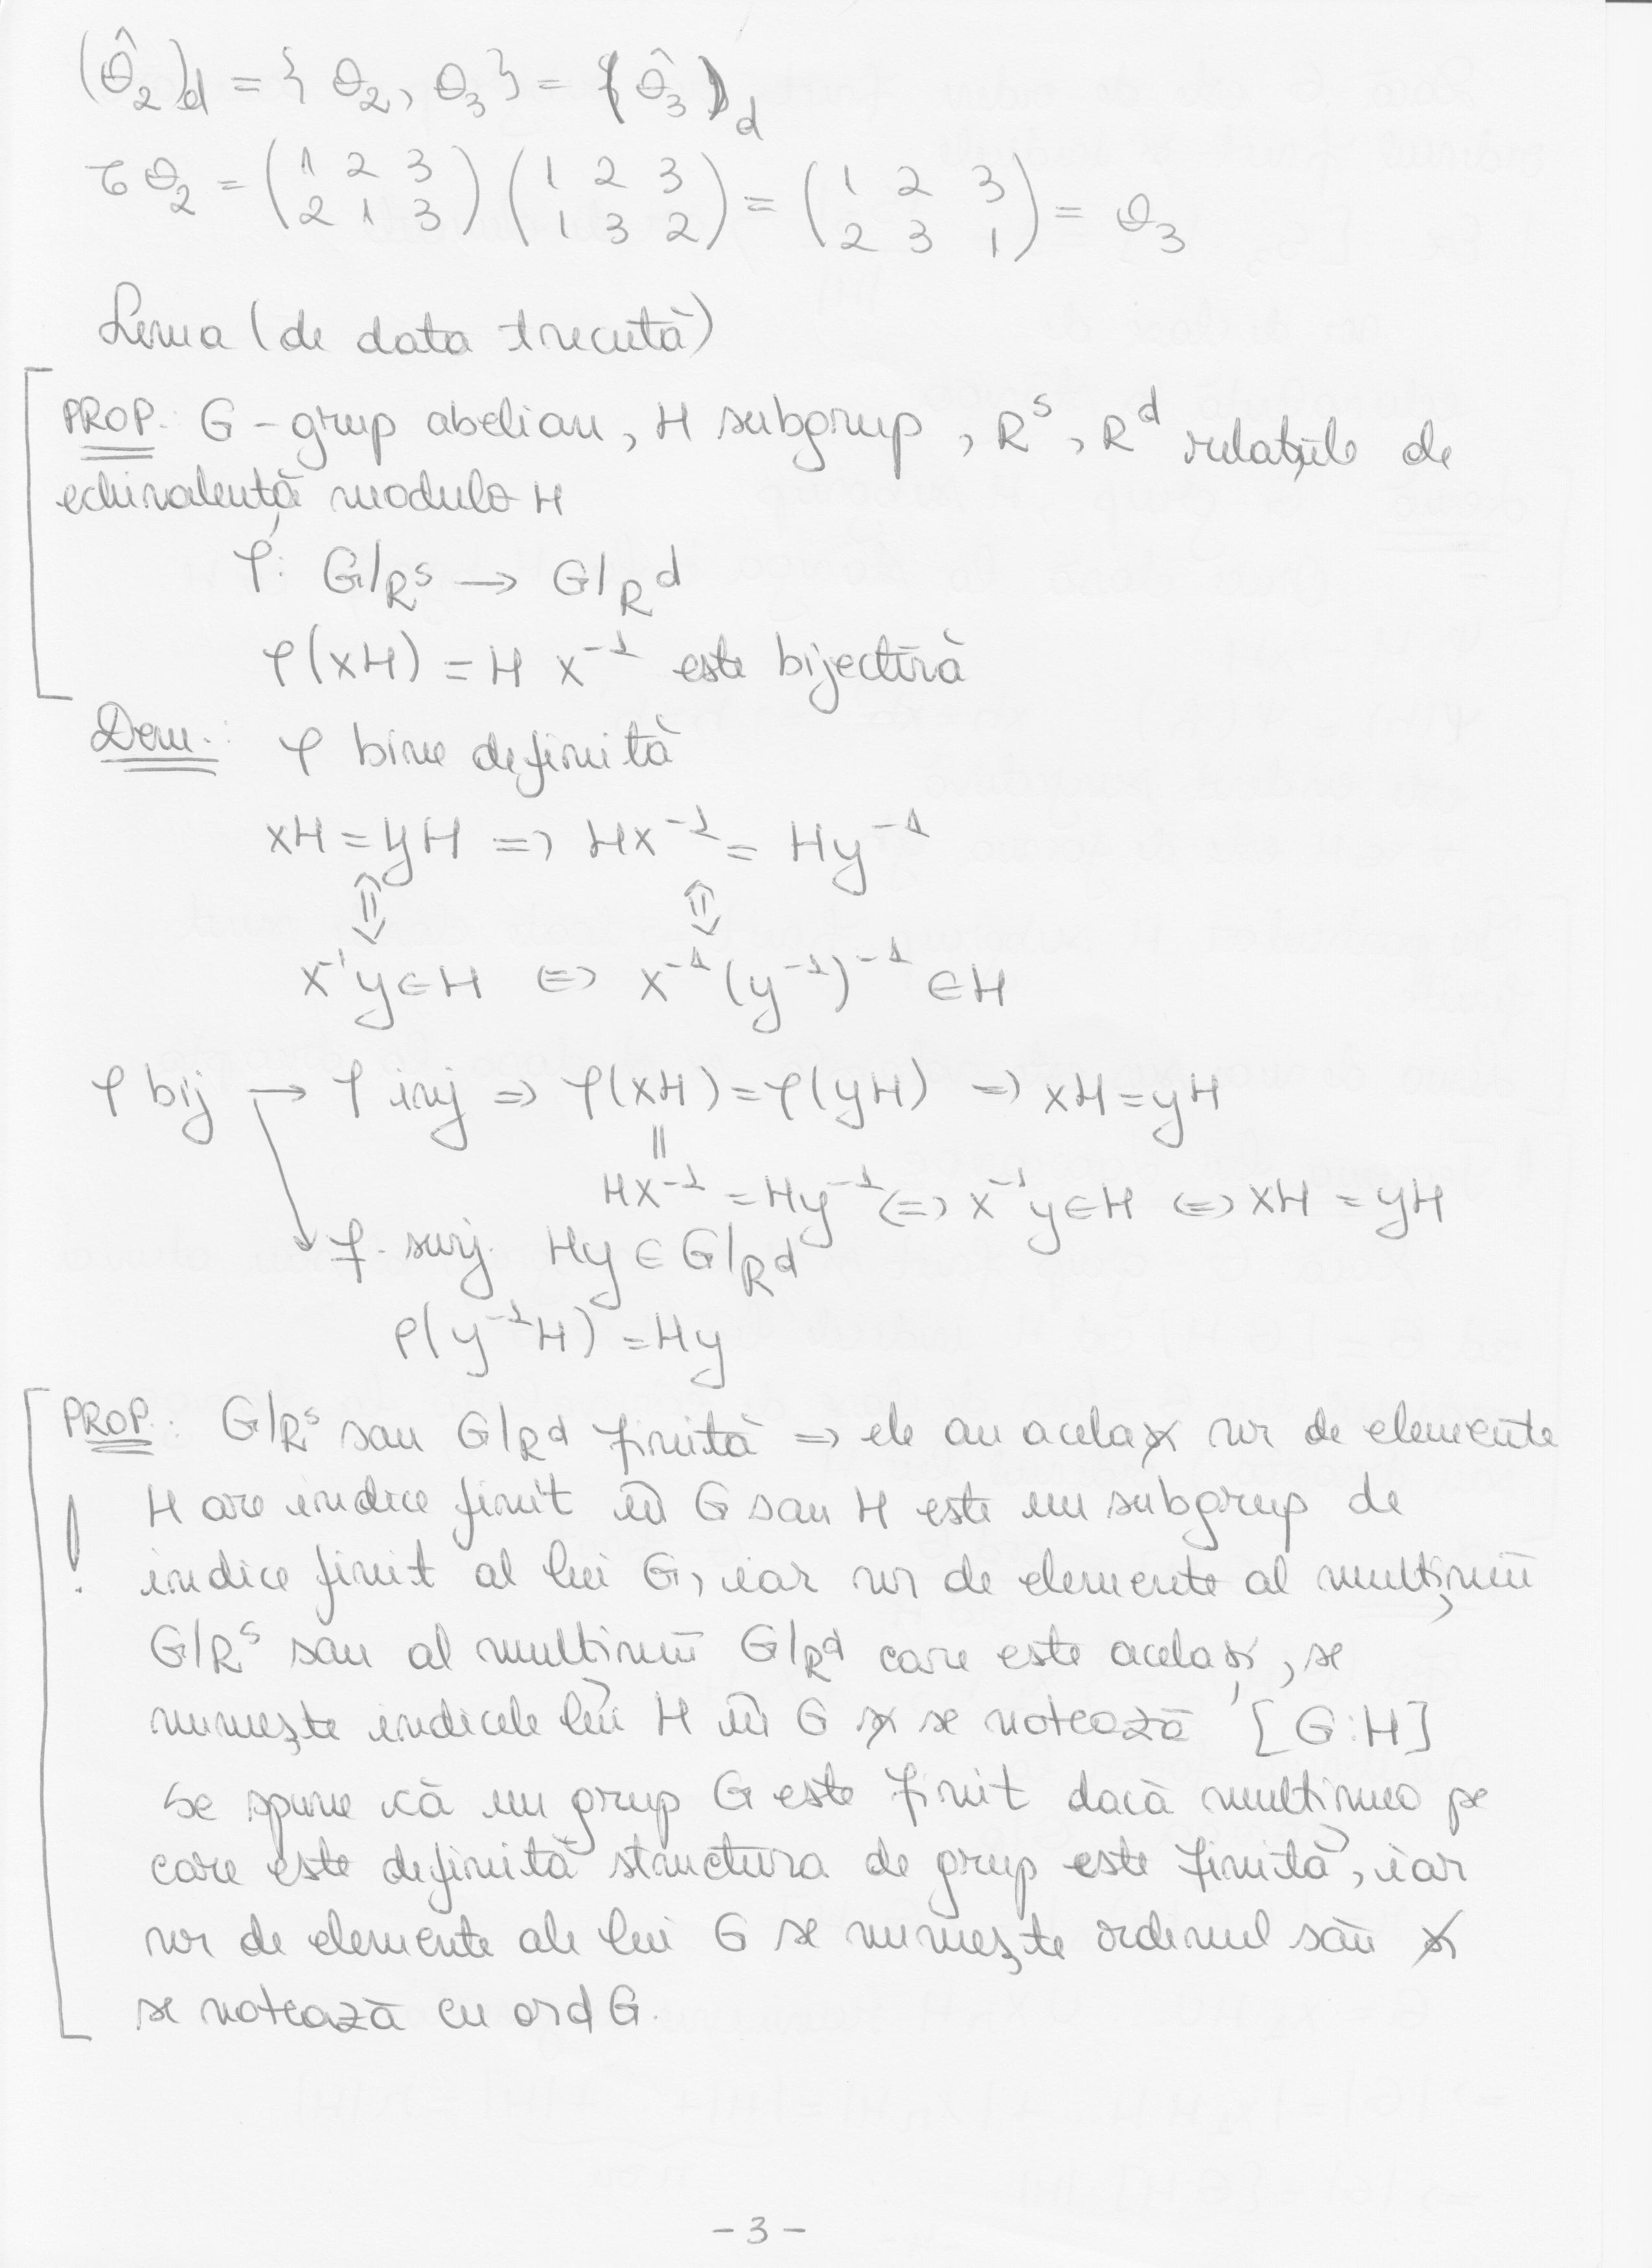 (θ̂₂)d = { θ₂, θ₃ } = (θ̂₃)d
τθ₂ = (1 2 3 / 2 1 3) (1 2 3 / 1 3 2) = (1 2 3 / 2 3 1) = θ₃
Lema (de data trecută)
PROP: G - grup abelian, H subgrup, Rˢ, Rᵈ relațiile de
echivalență modulo H
φ: G/Rˢ → G/Rᵈ
φ(xH) = H x⁻¹ este bijectivă
Dem.: φ bine definită
xH = yH => Hx⁻¹ = Hy⁻¹
⇕ ⇕
x⁻¹y ∈ H <=> x⁻¹(y⁻¹)⁻¹ ∈ H
φ bij → φ inj => φ(xH) = φ(yH) => xH = yH
||
Hx⁻¹ = Hy⁻¹ <=> x⁻¹y ∈ H <=> xH = yH
↘ φ. surj. Hy ∈ G/Rᵈ
φ(y⁻¹H) = Hy
PROP: G/Rˢ sau G/Rᵈ finită => ele au același nr de elemente
H are indice finit în G sau H este un subgrup de
! indice finit al lui G, iar nr de elemente al mulținii
G/Rˢ sau al mulținii G/Rᵈ care este același, se
numește indicele lui H în G și se notează [G:H]
Se spune că un grup G este finit dacă multimea pe
care este definită structura de grup este finită, iar
nr de elemente ale lui G se numește ordinul său și
se notează cu ord G.
- 3 -